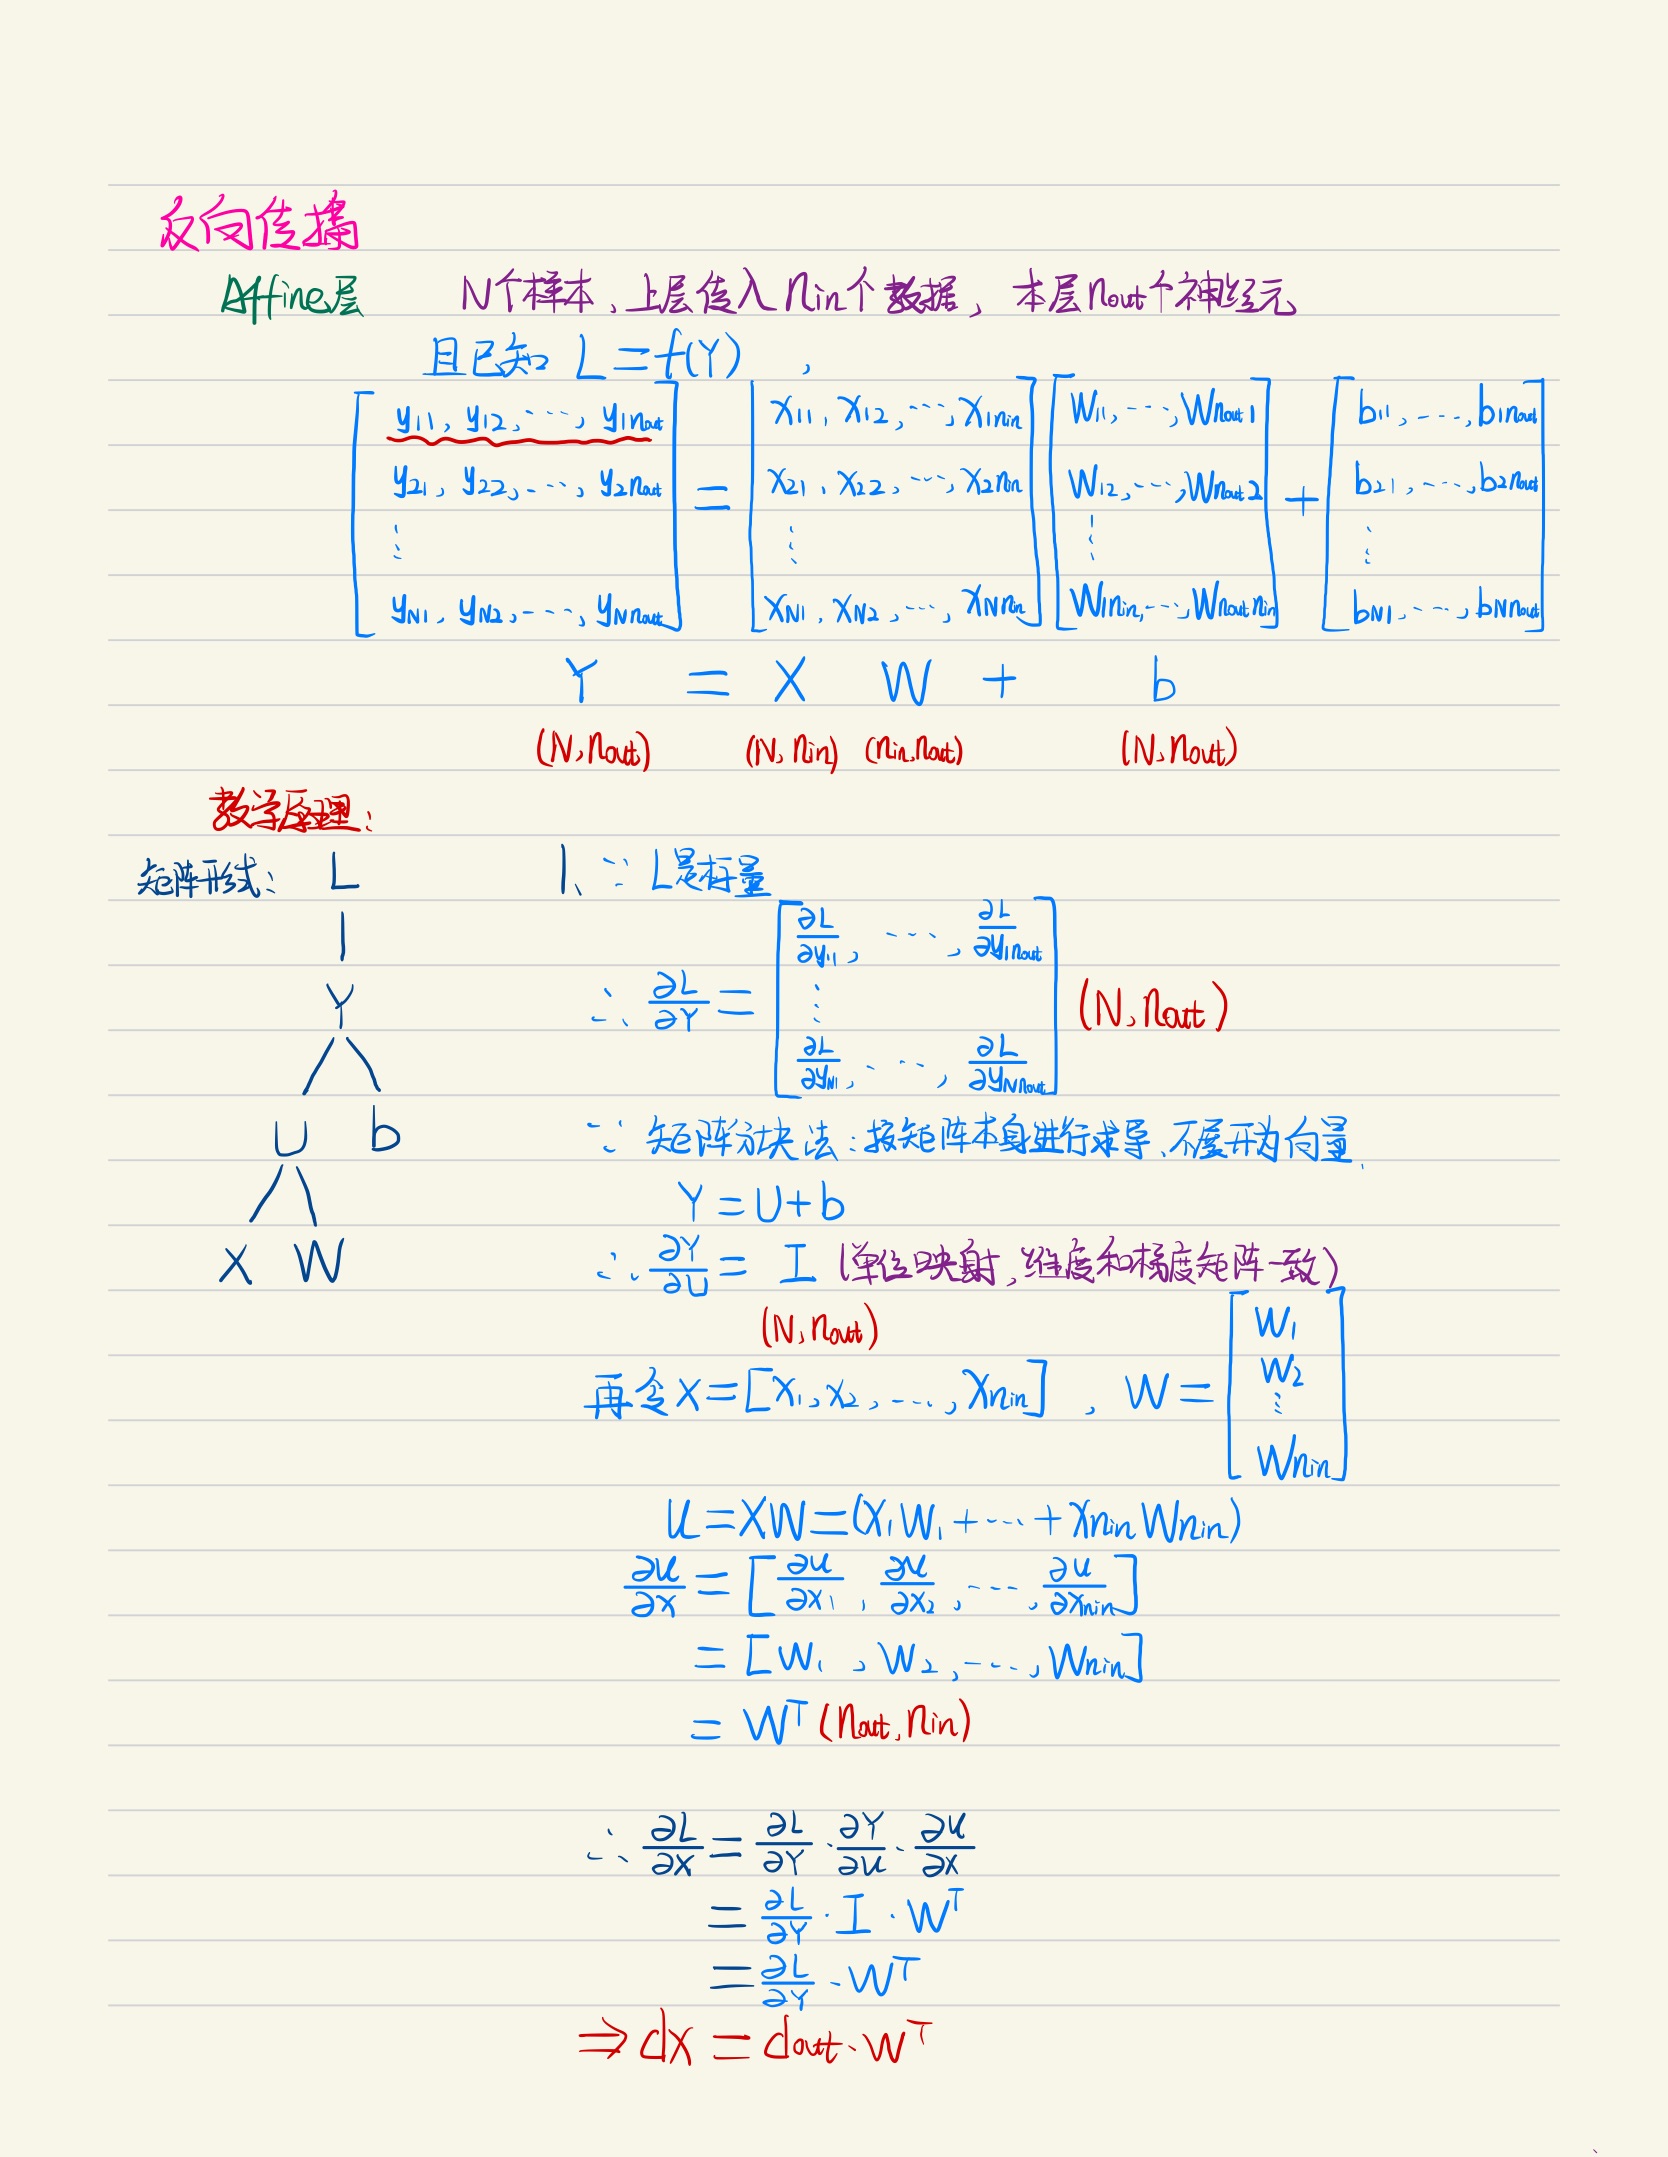 反向传播
Affine层 N个样本、上层传入 nin个数据，本层nout个神经元
且已知 L=f(Y)，
[ y11, y12, ..., y1nout ] [ x11, x12, ..., x1nin ] [ w11, ..., wnout1 ] [ b11, ..., b1nout ]
[ y21, y22, ..., y2nout ] = [ x21, x22, ..., x2nin ] [ w12, ..., wnout2 ] + [ b21, ..., b2nout ]
⋮ ⋮ ⋮ ⋮
[ yN1, yN2, ..., yNnout ] [ xN1, xN2, ..., xNnin ] [ w1nin, ..., wnoutnin ] [ bN1, ..., bNnout ]
Y = X W + b
(N, nout) (N, nin) (nin, nout) (N, nout)
数学原理：
矩阵形式： L
Y
U b
X W
1、∵ L是标量
∴ ∂L/∂Y = [ ∂L/∂y11, ..., ∂L/∂y1nout ⋮ ∂L/∂yN1, ..., ∂L/∂yNnout ] (N, nout)
∵ 矩阵分块法：按矩阵本身进行求导、不展开为向量.
Y = U + b
∴ ∂Y/∂U = I (单位映射，维度和梯度矩阵一致)
(N, nout)
再令 X = [x1, x2, ..., xnin] , W = [ w1 w2 ⋮ wnin ]
U = XW = (x1w1 + ... + xninwnin)
∂u/∂x = [ ∂u/∂x1, ∂u/∂x2, ..., ∂u/∂xnin ]
= [w1, w2, ..., wnin]
= W^T (nout, nin)
∴ ∂L/∂X = ∂L/∂Y · ∂Y/∂U · ∂U/∂X
= ∂L/∂Y · I · W^T
= ∂L/∂Y · W^T
⇒ dx = dout · W^T